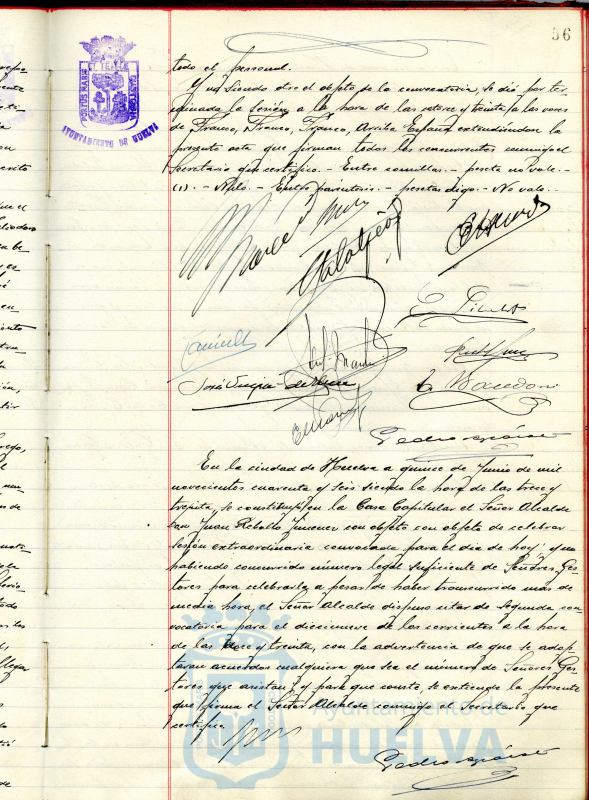 56
PORTUS MARIS ET TERRAE CUSTODIA
AYUNTAMIENTO DE HUELVA
todo el personal.
Y no siendo otro el objeto de la convocatoria, se dió por ter-
minada la Sesión a la hora de las catorce y treinta (a las voces
de Franco, Franco, Franco, Arriba España extendiendose la
presente acta que firman todos los concurrentes conmigo el
Secretario que certifico. - Entre comillas. - peseta no vale. -
(1). - Nulo. - Entre parentesis. - pesetas digo. - No vale. -
Pedro
En la ciudad de Huelva a quince de Junio de mil
novecientos cuarenta y seis siendo la hora de las trece y
treinta, se constituyó en la Casa Capitular el Señor Alcalde
Don Juan Rebollo Jimenez con objeto con objeto de celebrar
sesión extraordinaria convocada para el dia de hoy; y no
habiendo concurrido número legal suficiente de Señores Ges-
tores para celebrarla a pesar de haber transcurrido más de
media hora, el Señor Alcalde dispuso citar de segunda con-
vocatoria para el diecinueve de los corrientes a la hora
de las doce y treinta, con la advertencia de que se adop-
taran acuerdos cualquiera que sea el número de Señores Ges-
tores que asistan; y para que conste, se extiende la presente
que firma el Señor Alcalde conmigo el Secretario que
certifico.
Pedro
Ayuntamiento de
HUELVA